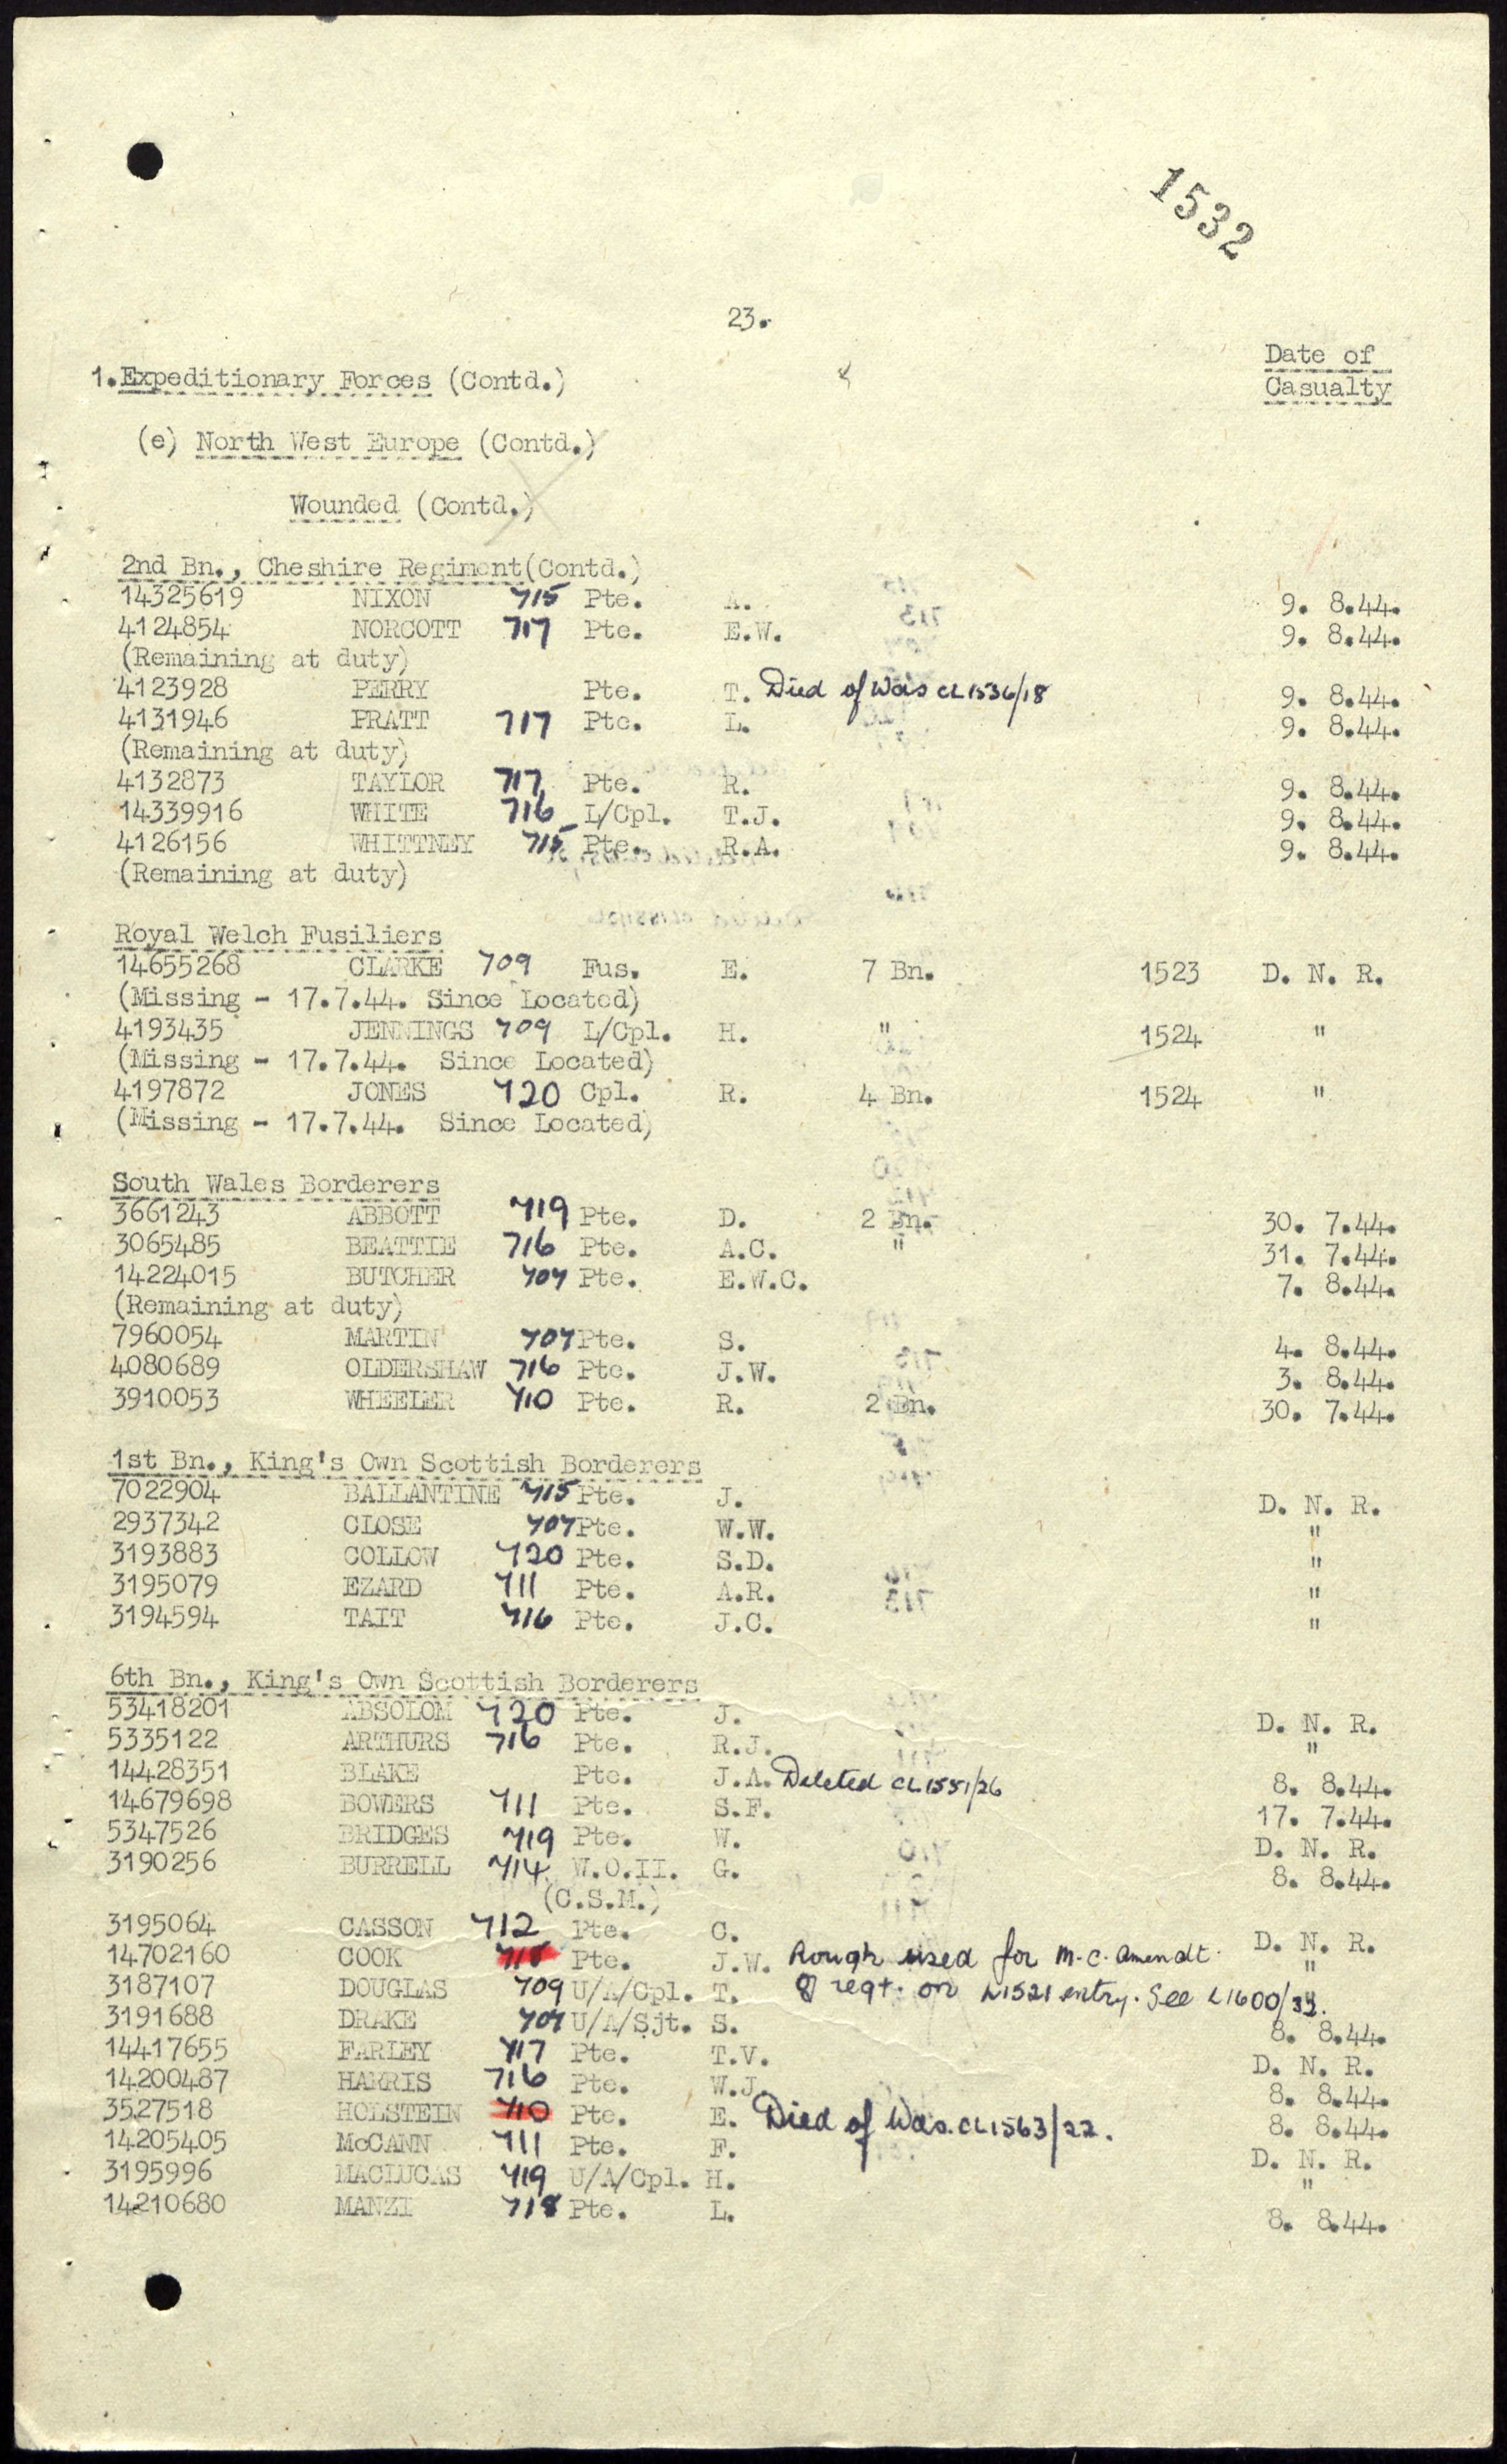 1532
23.
Date of
Casualty
1.Expeditionary Forces (Contd.)
(e) North West Europe (Contd.)
Wounded (Contd.)
2nd Bn., Cheshire Regiment(Contd.)
14325619 NIXON 715 Pte. A. 9. 8.44.
4124854 NORCOTT 717 Pte. E.W. 9. 8.44.
(Remaining at duty)
4123928 PERRY Pte. T. Died of Wds CL1536/18 9. 8.44.
4131946 PRATT 717 Pte. L. 9. 8.44.
(Remaining at duty)
4132873 TAYLOR 717 Pte. R. 9. 8.44.
14339916 WHITE 716 L/Cpl. T.J. 9. 8.44.
4126156 WHITTNEY 715 Pte. R.A. 9. 8.44.
(Remaining at duty)
Royal Welch Fusiliers
14655268 CLARKE 709 Fus. E. 7 Bn. 1523 D. N. R.
(Missing - 17.7.44. Since Located)
4193435 JENNINGS 709 L/Cpl. H. " 1524 "
(Missing - 17.7.44. Since Located)
4197872 JONES 720 Cpl. R. 4 Bn. 1524 "
(Missing - 17.7.44. Since Located)
South Wales Borderers
3661243 ABBOTT 719 Pte. D. 2 Bn. 30. 7.44.
3065485 BEATTIE 716 Pte. A.C. " 31. 7.44.
14224015 BUTCHER 707 Pte. E.W.C. 7. 8.44.
(Remaining at duty)
7960054 MARTIN 707 Pte. S. 4. 8.44.
4080689 OLDERSHAW 716 Pte. J.W. 3. 8.44.
3910053 WHEELER 710 Pte. R. 2 Bn. 30. 7.44.
1st Bn., King's Own Scottish Borderers
7022904 BALLANTINE 715 Pte. J. D. N. R.
2937342 CLOSE 707 Pte. W.W. "
3193883 COLLOW 720 Pte. S.D. "
3195079 EZARD 711 Pte. A.R. "
3194594 TAIT 716 Pte. J.C. "
6th Bn., King's Own Scottish Borderers
53418201 ABSOLOM 720 Pte. J. D. N. R.
5335122 ARTHURS 716 Pte. R.J. "
14428351 BLAKE Pte. J.A. Deleted CL1551/26 8. 8.44.
14679698 BOWERS 711 Pte. S.F. 17. 7.44.
5347526 BRIDGES 719 Pte. W. D. N. R.
3190256 BURRELL 714 W.O.II. G. 8. 8.44.
(C.S.M.)
3195064 CASSON 712 Pte. C. D. N. R.
14702160 COOK 718 Pte. J.W. Rough used for M.C. Amendt. "
3187107 DOUGLAS 709 U/A/Cpl. T. of regt. on L1521 entry. See L1600/
3191688 DRAKE 707 U/A/Sjt. S. 8. 8.44.
14417655 FARLEY 717 Pte. T.V. D. N. R.
14200487 HARRIS 716 Pte. W.J. 8. 8.44.
3527518 HOLSTEIN 710 Pte. E. Died of Wds. CL1563/22. 8. 8.44.
14205405 McCANN 711 Pte. F. D. N. R.
3195996 MACLUCAS 719 U/A/Cpl. H. "
14210680 MANZI 718 Pte. L. 8. 8.44.